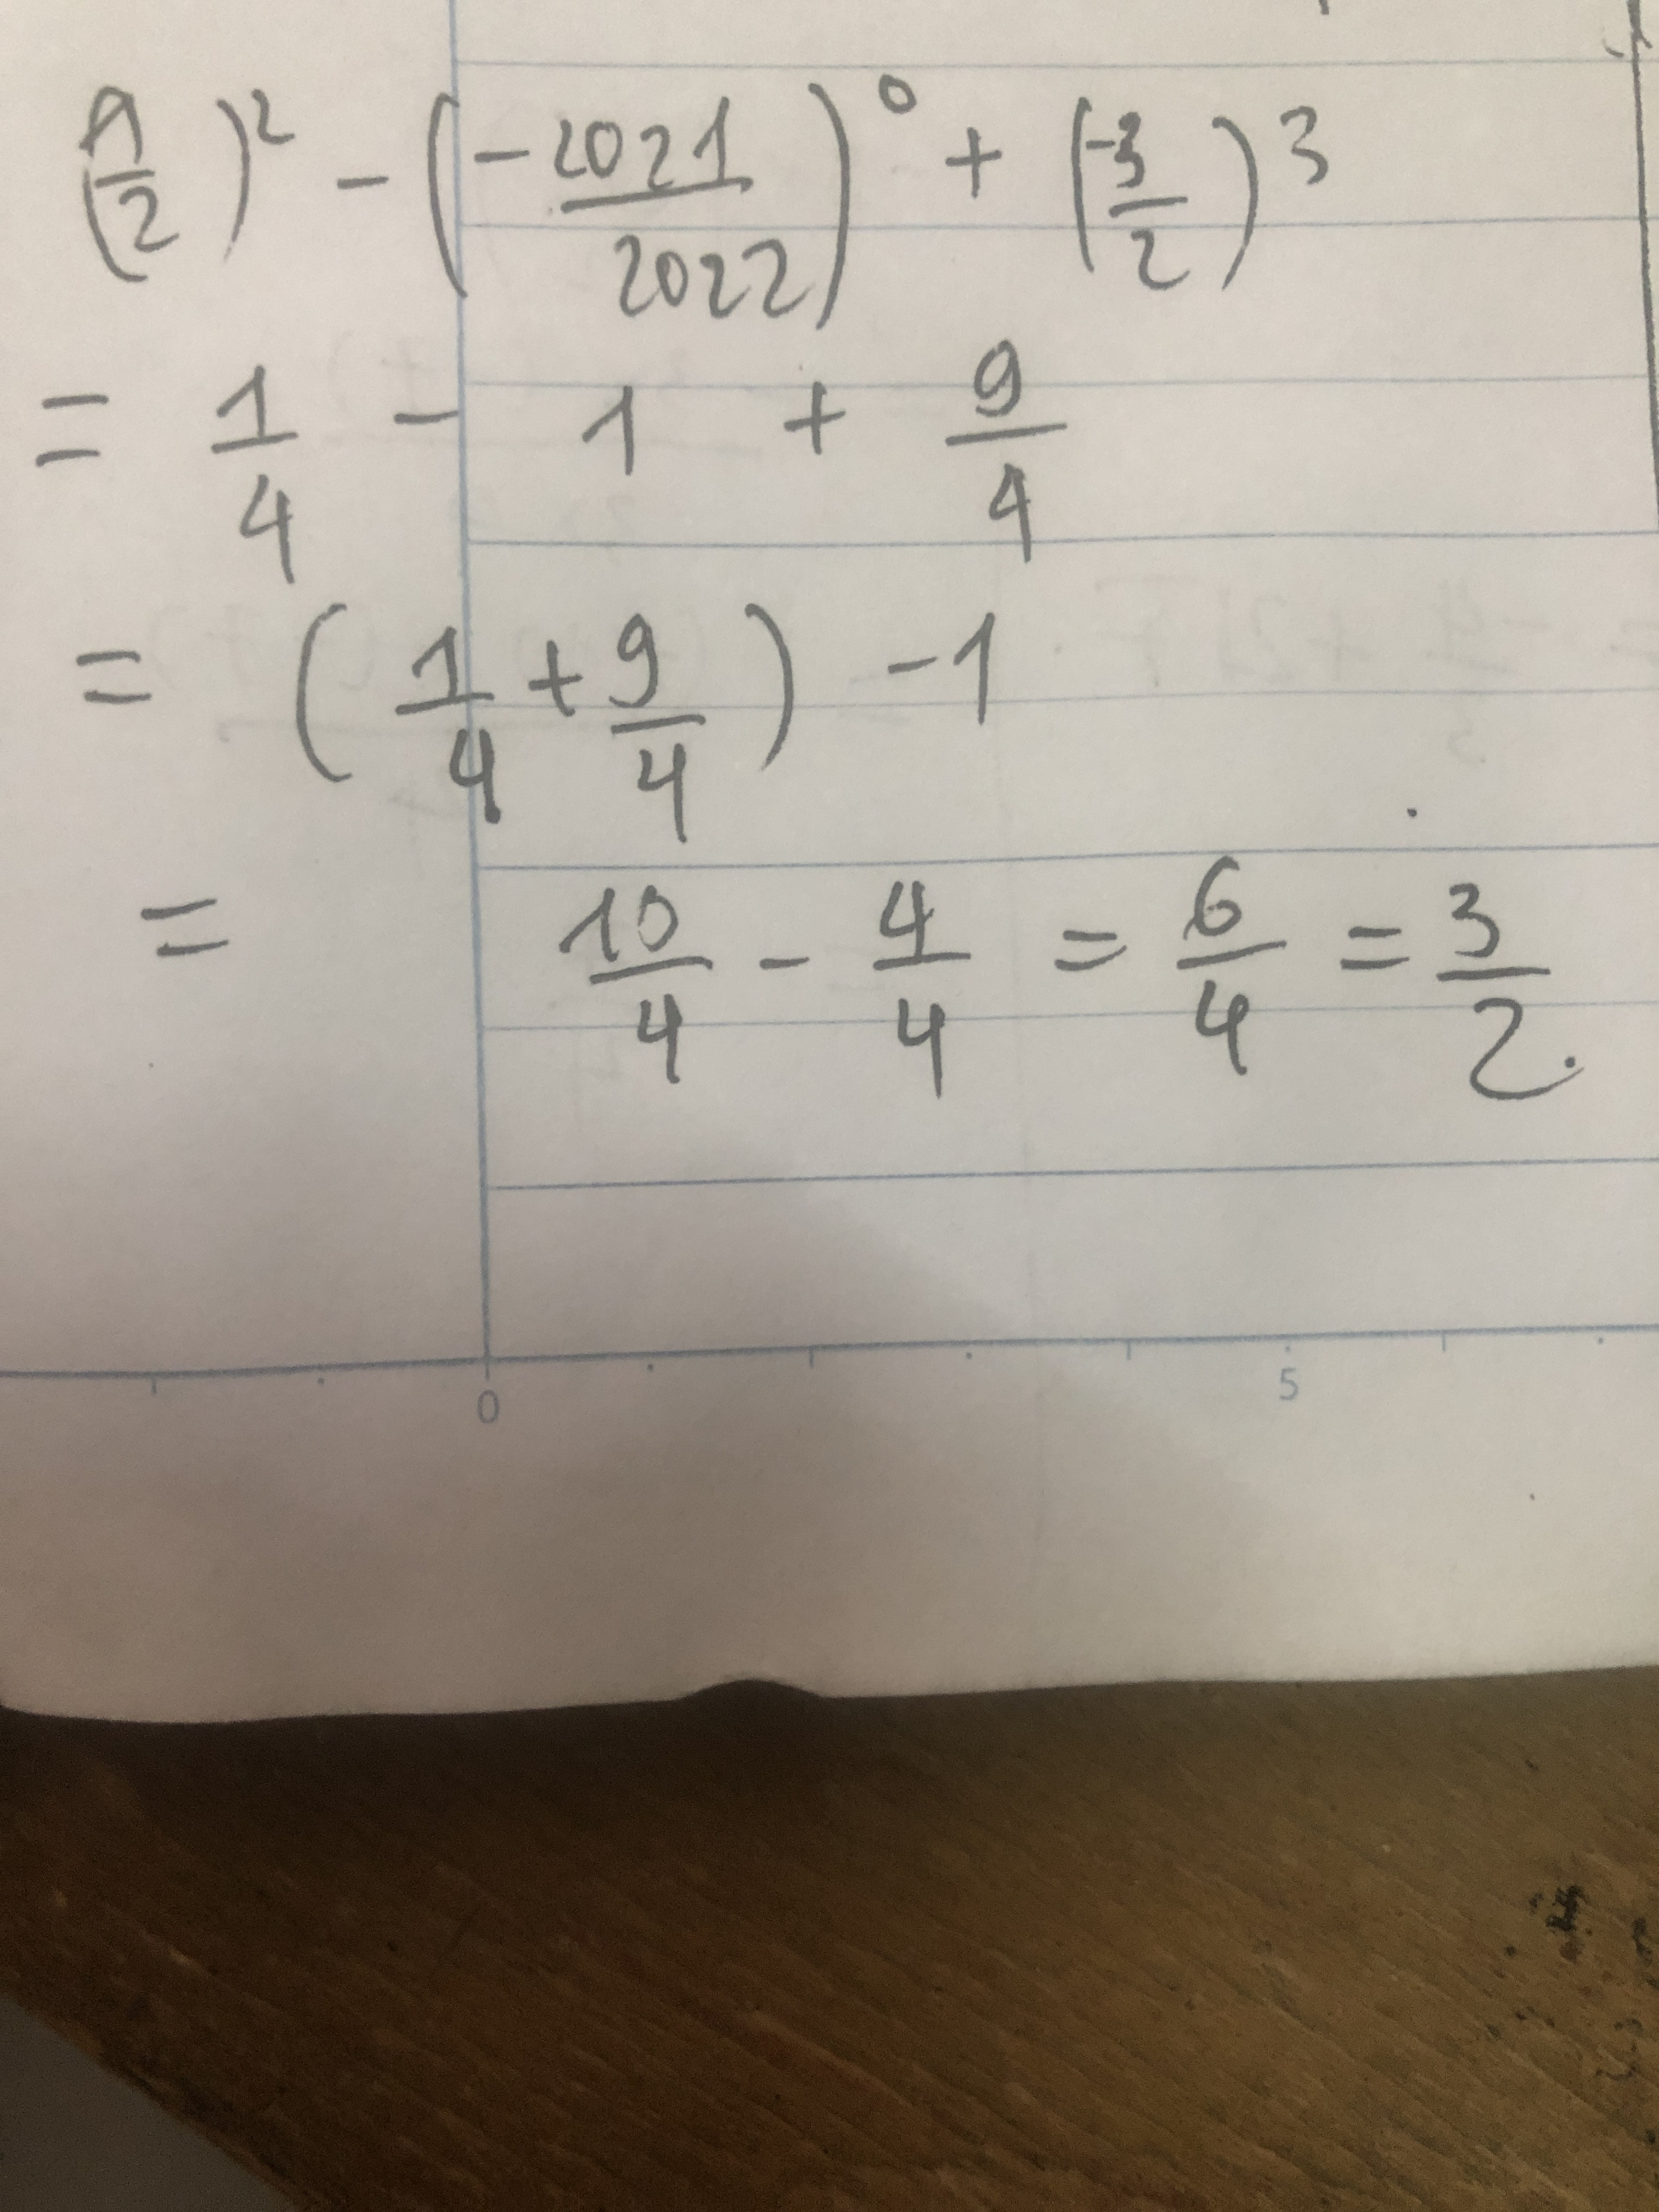 (1/2)² - (-2021/2022)⁰ + (-3/2)³
= 1/4 - 1 + 9/4
= (1/4 + 9/4) - 1
= 10/4 - 4/4 = 6/4 = 3/2.
0 5